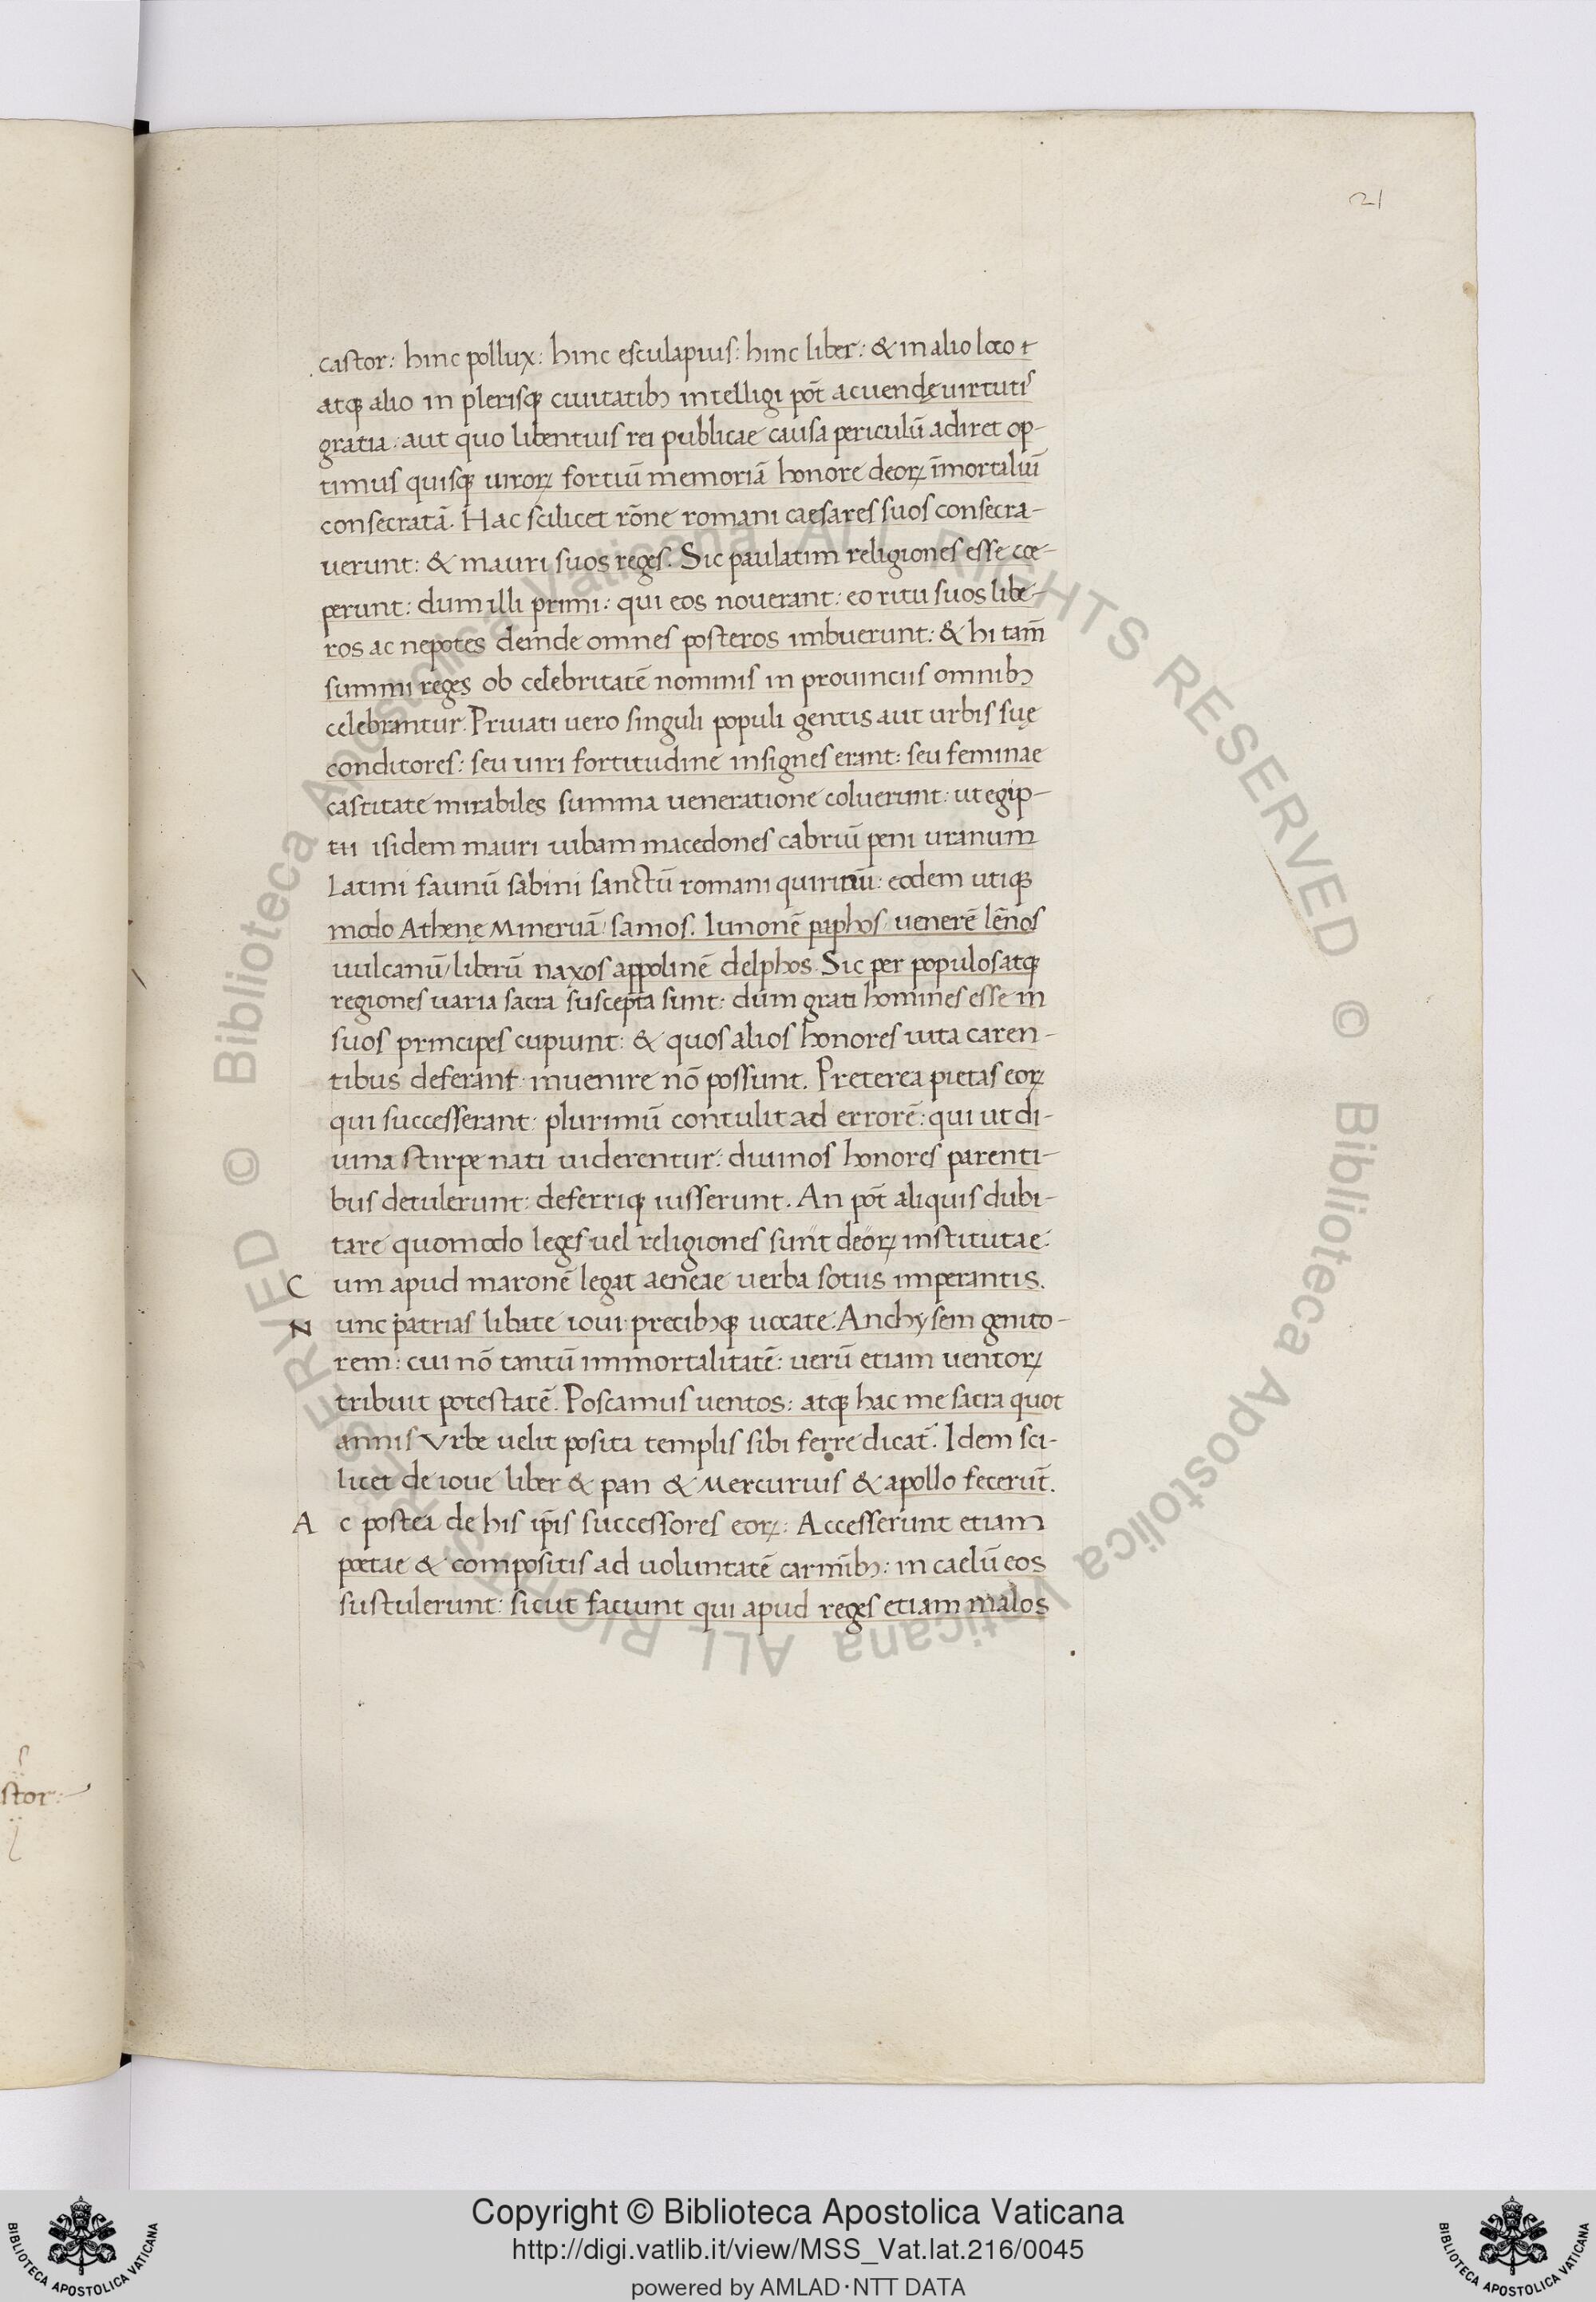 21
castor: hinc pollux: hinc esculapius: hinc liber: & in alio loco t
atq; alio in plerisq; ciuitatib; intelligi põt acuendę uirtutis
gratia: aut quo libentius rei publicae causa periculū adiret op-
timus quisq; uiroꝝ fortiū memoriā honore deoꝝ īmortaliū
consecratā. Hac scilicet rōne romani caesares suos consecra-
uerunt: & mauri suos reges. Sic paulatim religiones esse cœ-
perunt: dum illi primi: qui eos nouerant: eo ritu suos libe-
ros ac nepotes deinde omnes posteros imbuerunt: & hi tam̄
summi reges ob celebritatē nominis in prouinciis omnib;
celebrantur. Priuati uero singuli populi gentis aut urbis suę
conditores: seu uiri fortitudine insignes erant: seu feminae
castitate mirabiles summa ueneratione coluerunt: ut egip-
tii isidem mauri iubam macedones cabriū peni uranum
Latini faunū sabini sanctū romani quirinū: eodem utiq;
modo Athenę Mineruā: samos. Iunonē paphos uenerē lēnos
uulcanū/liberū naxos appolinē delphos. Sic per populos atq;
regiones uaria sacra suscepta sunt: dum grati homines esse in
suos principes cupiunt: & quos alios honores uita caren-
tibus deferant inuenire nō possunt. Preterea pietas eoꝝ
qui successerant: plurimū contulit ad errorē: qui ut di-
uina stirpe nati uiderentur: diuinos honores parenti-
bus detulerunt: deferriq; iusserunt. An põt aliquis dubi-
tare quomodo leges uel religiones sunt deoꝝ institutae:
C um apud maronē legat aeneae uerba sotiis imperantis.
N unc patrias libate ioui: precib;q; uocate: Anchysem genito-
rem: cui nō tantū immortalitatē: uerū etiam uentoꝝ
tribuit potestatē. Poscamus uentos: atq; hac me sacra quot
annis Vrbe uelit posita templis sibi ferre dicat̄. Idem sci-
licet de ioue liber & pan & Mercurius & apollo fecerūt.
A c postea de his ip̄is successores eoꝝ: Accesserunt etiam
poetae & compositis ad uoluntatē carmīb;: in caelū eos
sustulerunt: sicut faciunt qui apud reges etiam malos
stor:
© Biblioteca Apostolica Vaticana ALL RIGHTS RESERVED © Biblioteca Apostolica Vaticana ALL RIGHTS RESERVED
Copyright © Biblioteca Apostolica Vaticana
http://digi.vatlib.it/view/MSS_Vat.lat.216/0045
powered by AMLAD·NTT DATA
BIBLIOTECA APOSTOLICA VATICANA
BIBLIOTECA APOSTOLICA VATICANA